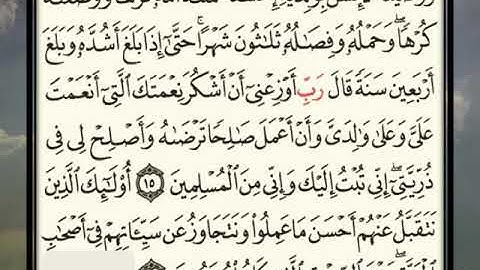 كُرْهًاۖ وَحَمْلُهُۥ وَفِصَٰلُهُۥ ثَلَٰثُونَ شَهْرًاۚ حَتَّىٰٓ إِذَا بَلَغَ أَشُدَّهُۥ وَبَلَغَ
أَرْبَعِينَ سَنَةً قَالَ رَبِّ أَوْزِعْنِىٓ أَنْ أَشْكُرَ نِعْمَتَكَ ٱلَّتِىٓ أَنْعَمْتَ
عَلَىَّ وَعَلَىٰ وَٰلِدَىَّ وَأَنْ أَعْمَلَ صَٰلِحًا تَرْضَىٰهُ وَأَصْلِحْ لِى فِى
ذُرِّيَّتِىٓۖ إِنِّى تُبْتُ إِلَيْكَ وَإِنِّى مِنَ ٱلْمُسْلِمِينَ ١٥ أُو۟لَٰٓئِكَ ٱلَّذِينَ
نَتَقَبَّلُ عَنْهُمْ أَحْسَنَ مَا عَمِلُوا۟ وَنَتَجَاوَزُ عَن سَيِّـَٔاتِهِمْ فِىٓ أَصْحَٰبِ